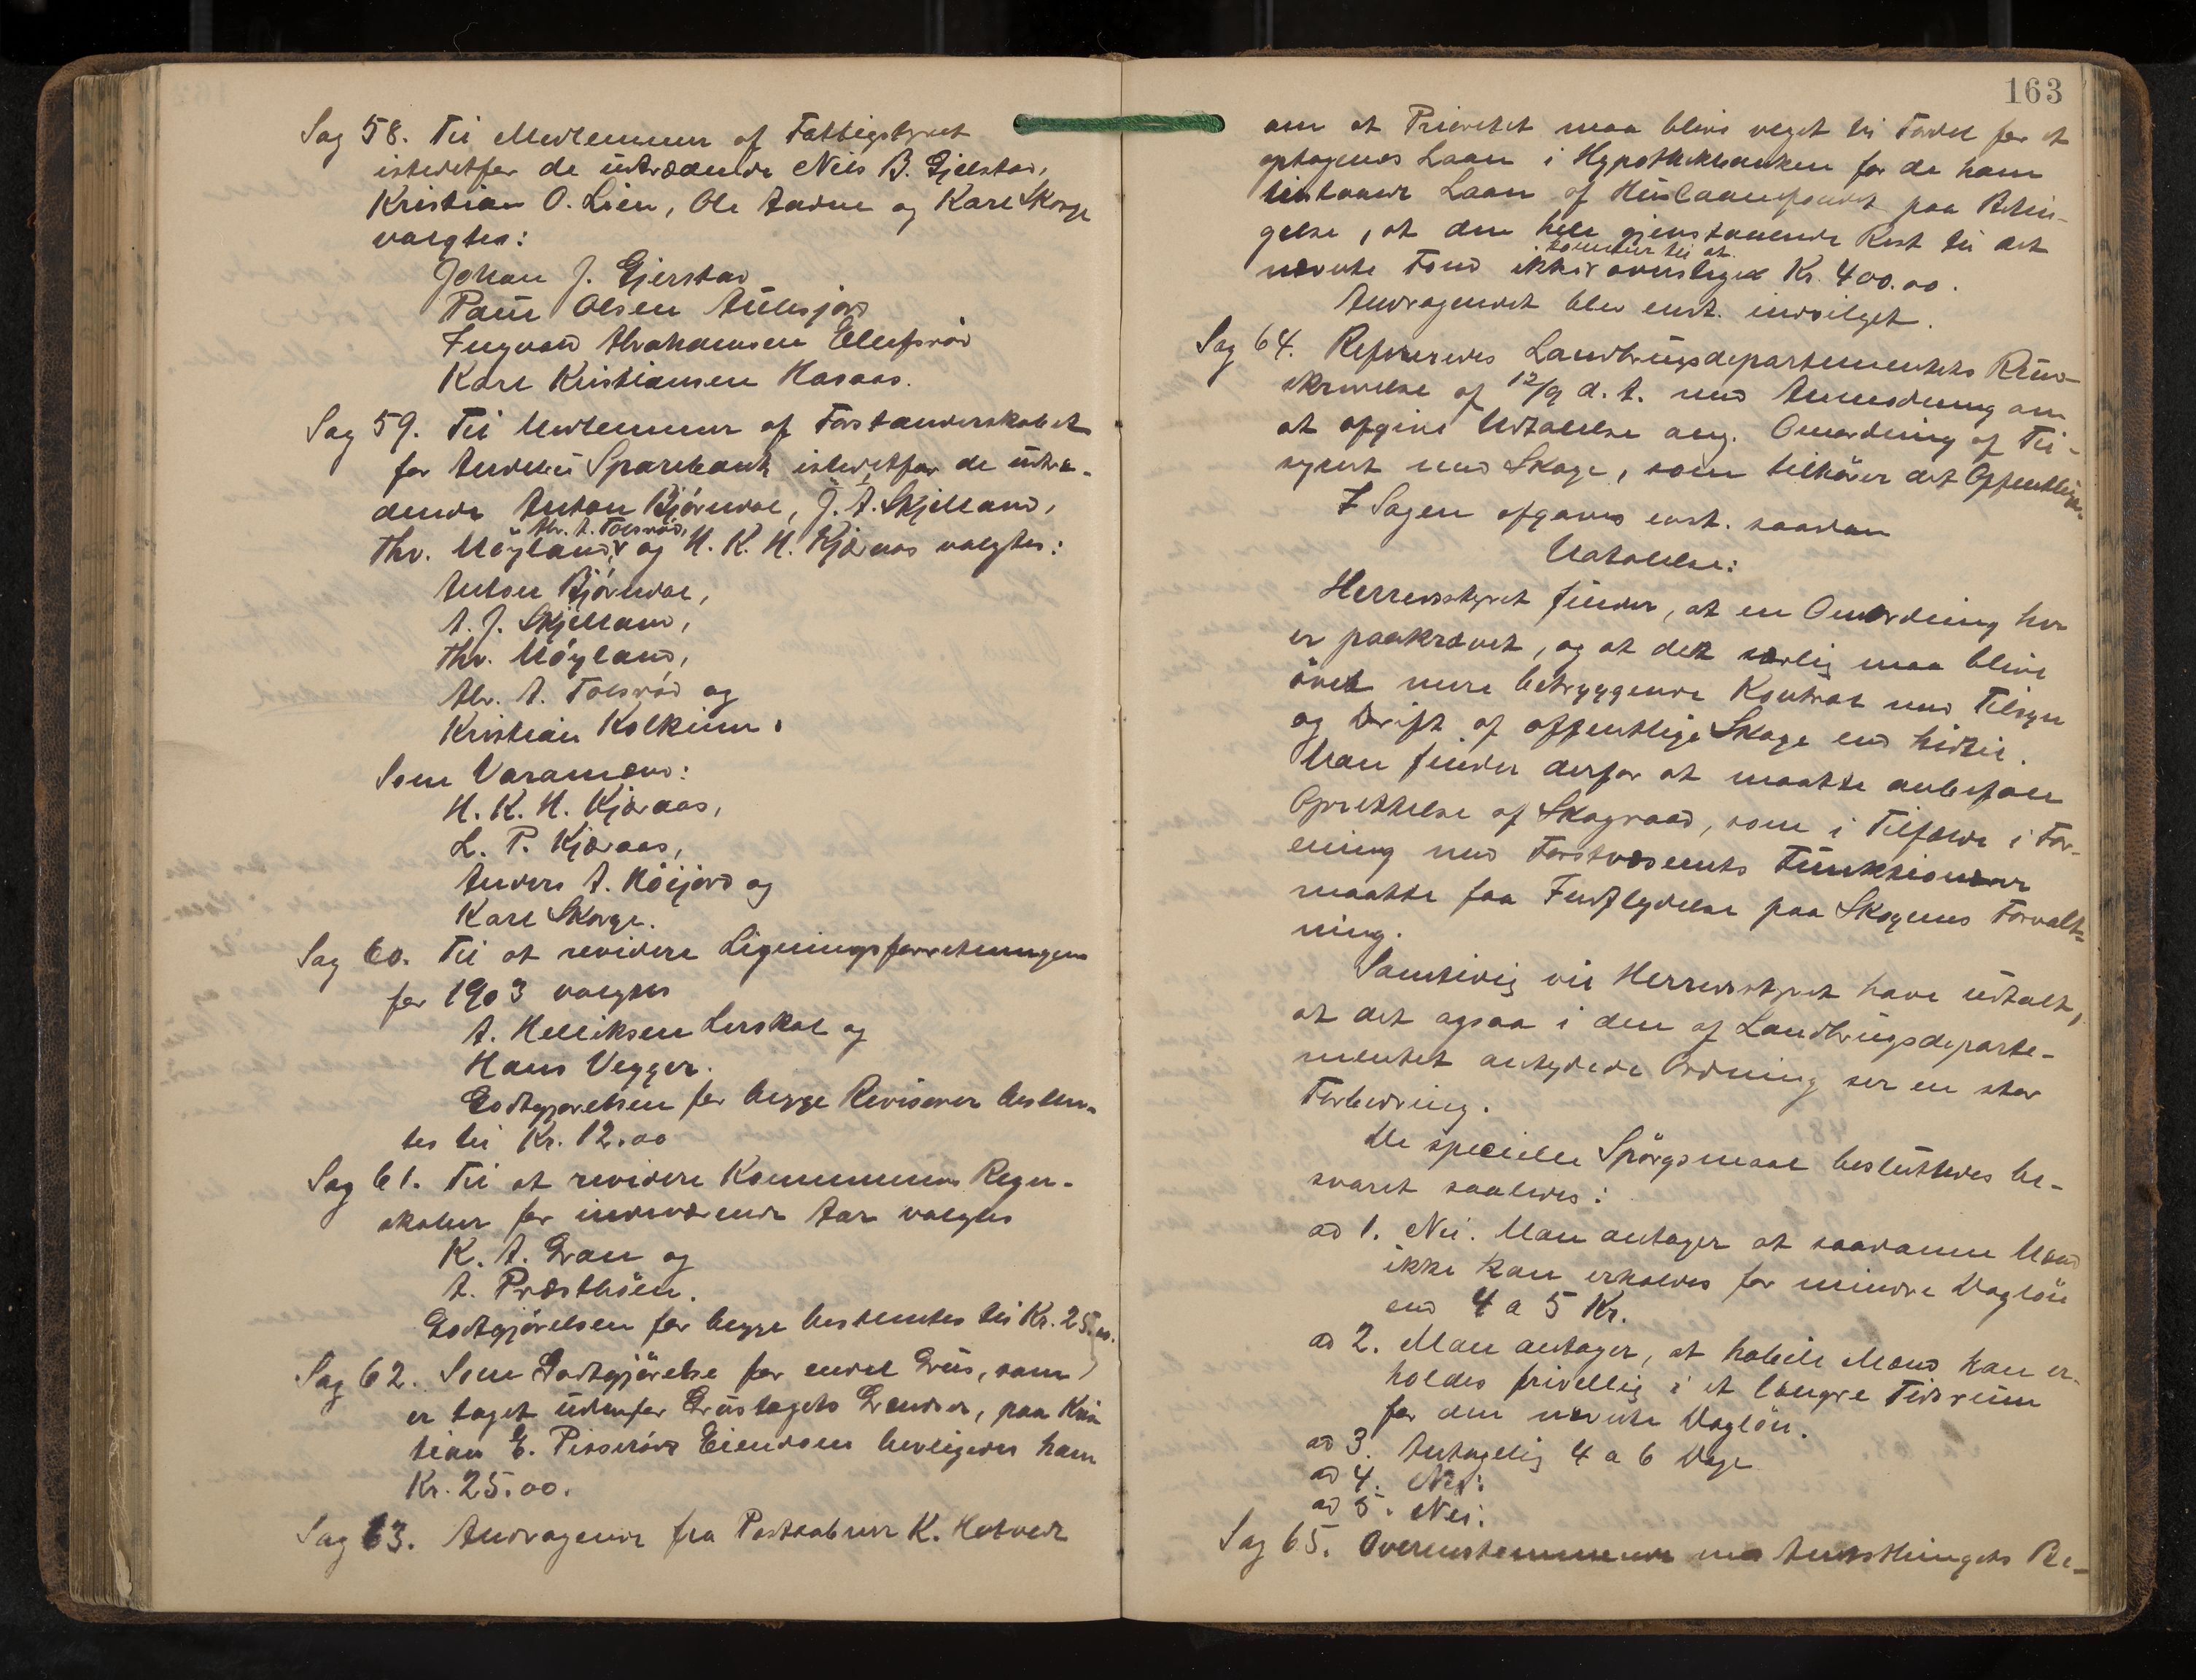 Sag 58. Til Medlemmer af Fattigstyret
istedetfor de udtrædende Nils B. Gjelstad,
Kristian O. Lien, Ole Aadne og Karl Skorge
valgtes:
Johan J. Gjerstad
Paul Olsen Aulesjord
Ingvald Abrahamsen Ellefsrød
Karl Kristiansen Hasaas.
Sag 59. Til Medlemmer af Forstanderskabet
for Andebu Sparebank istedetfor de udtræ-
dende Anton Bjørndal, J. A. Skjelland,
Abr. A. Tolsrød,
Thv. Møyland, og H. K. H. Kjæraas valgtes:
Anton Bjørndal,
A. J. Skjelland,
Thv. Møyland,
Abr. A. Tolsrød og
Kristian Kolkinn.
Som Varamænd:
H. K. H. Kjæraas,
L. P. Kjæraas,
Anders A. Høijord og
Karl Skorge.
Sag 60. Til at revidere Ligningsforretningen
for 1903 valgtes
A. Helliksen Lerskal og
Hans Vegger.
Godtgjørelsen for begge Revisorer bestem-
tes til Kr. 12.00
Sag 61. Til at revidere Kommunens Regn-
skaber for indeværende Aar valgtes
K. A. Gran og
A. Præsthøien.
Godtgjørelsen for begge bestemtes til Kr. 25.00.
Sag 62. Som Godtgjørelse for endel Grus, som
er taget udenfor Grustagets Grændser, paa Kris
tian E. Pisserøds Eiendom bevilgedes ham
Kr. 25.00.
Sag 63. Andragende fra Postaabner K. Hotvedt
163
om at Prioritet maa blive veget til Fordel for et
optagenes Laan i Hypothekbanken for de ham
tilstaaede Laan af Huslaanefondet paa Betin-
gelse, at den hele gjenstaaende Rest til det
kommer til at
nævnte Fond ikke overstige Kr. 400.00.
Andragendet blev enst. indvilget.
Sag 64. Refereredes Landbrugsdepartementets Rund-
skrivelse af 12/9 d. A. med Anmodning om
at afgive Udtalelse ang. Omordning af Til-
synet med Skoge, som tilhører det Offentlige.
I Sagen afgaves enst. saadan
Udtalelse:
Herredsstyret finder, at en Omordning her
er paakrævet, og at det særlig maa blive
øvet mere betryggende Kontrol med Tilsyn
og Drift af offentlige Skoge end hidtil.
Man finder derfor at maatte anbefale
Oprettelse af Skograad, som i Tilfælde i For-
ening med Forstvæsenets Funktionærer
maatte faa Indflydelse paa Skogenes Forvalt-
ning.
Samtidig vil Herredsstyret have udtalt,
at det ogsaa i den af Landbrugsdeparte-
mentet antydede Ordning ser en stor
Forbedring.
De specielle Spørgsmaal besluttedes be-
svaret saaledes:
ad 1. Nei. Man antager at saadanne Mænd
ikke kan erholdes for mindre Dagløn
end 4 a 5 Kr.
ad 2. Man antager, at habile Mænd kan er-
holdes frivillig i et længre Tidsrum
for den nævnte Dagløn.
ad 3. Antagelig 4 a 6 Dage
ad 4. Nei.
ad 5. Nei.
Sag 65. Overensstemmende med Amtsthingets Be-